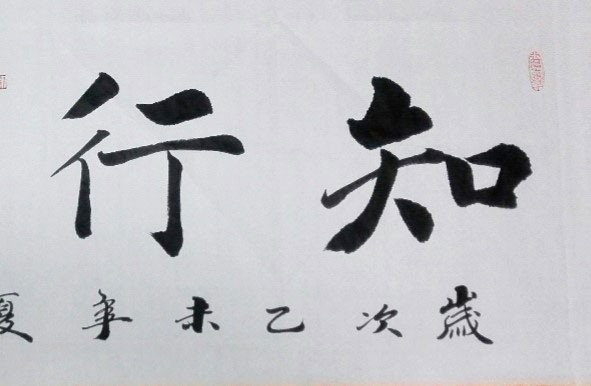 知行
歲次乙未年夏